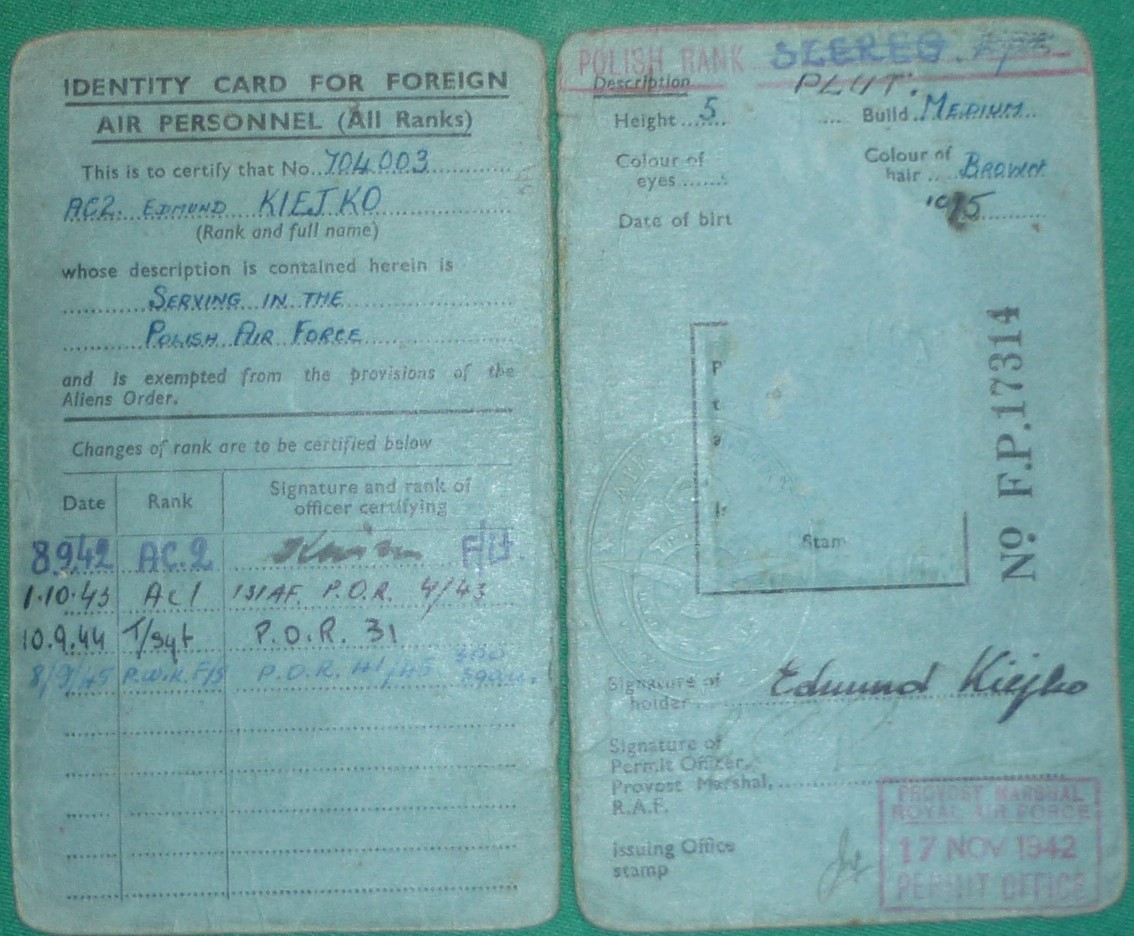 IDENTITY CARD FOR FOREIGN
AIR PERSONNEL (All Ranks)
This is to certify that No. 704003
AC2. EDMUND KIEJKO
(Rank and full name)
whose description is contained herein is
SERVING IN THE
POLISH AIR FORCE
and is exempted from the provisions of the
Aliens Order.
Changes of rank are to be certified below
Date Rank Signature and rank of
officer certifying
8.9.42 AC.2 F/Lt.
1.10.43 Ac1 P.O.R. 4/43
10.9.44 T/Sgt P.O.R. 31
8/9/45 P.W.K. F/S P.O.R. 41/45
POLISH RANK SZEREG.
PLUT.
Description
Height 5 Build MEDIUM
Colour of
eyes
Colour of
hair BROWN
Date of birt
Stam
No F.P.17314
Signature of
holder Edmund Kiejko
Signature of
Permit Officer,
Provost Marshal,
R.A.F.
Issuing Office
stamp
PROVOST MARSHAL
ROYAL AIR FORCE
17 NOV 1942
PERMIT OFFICE